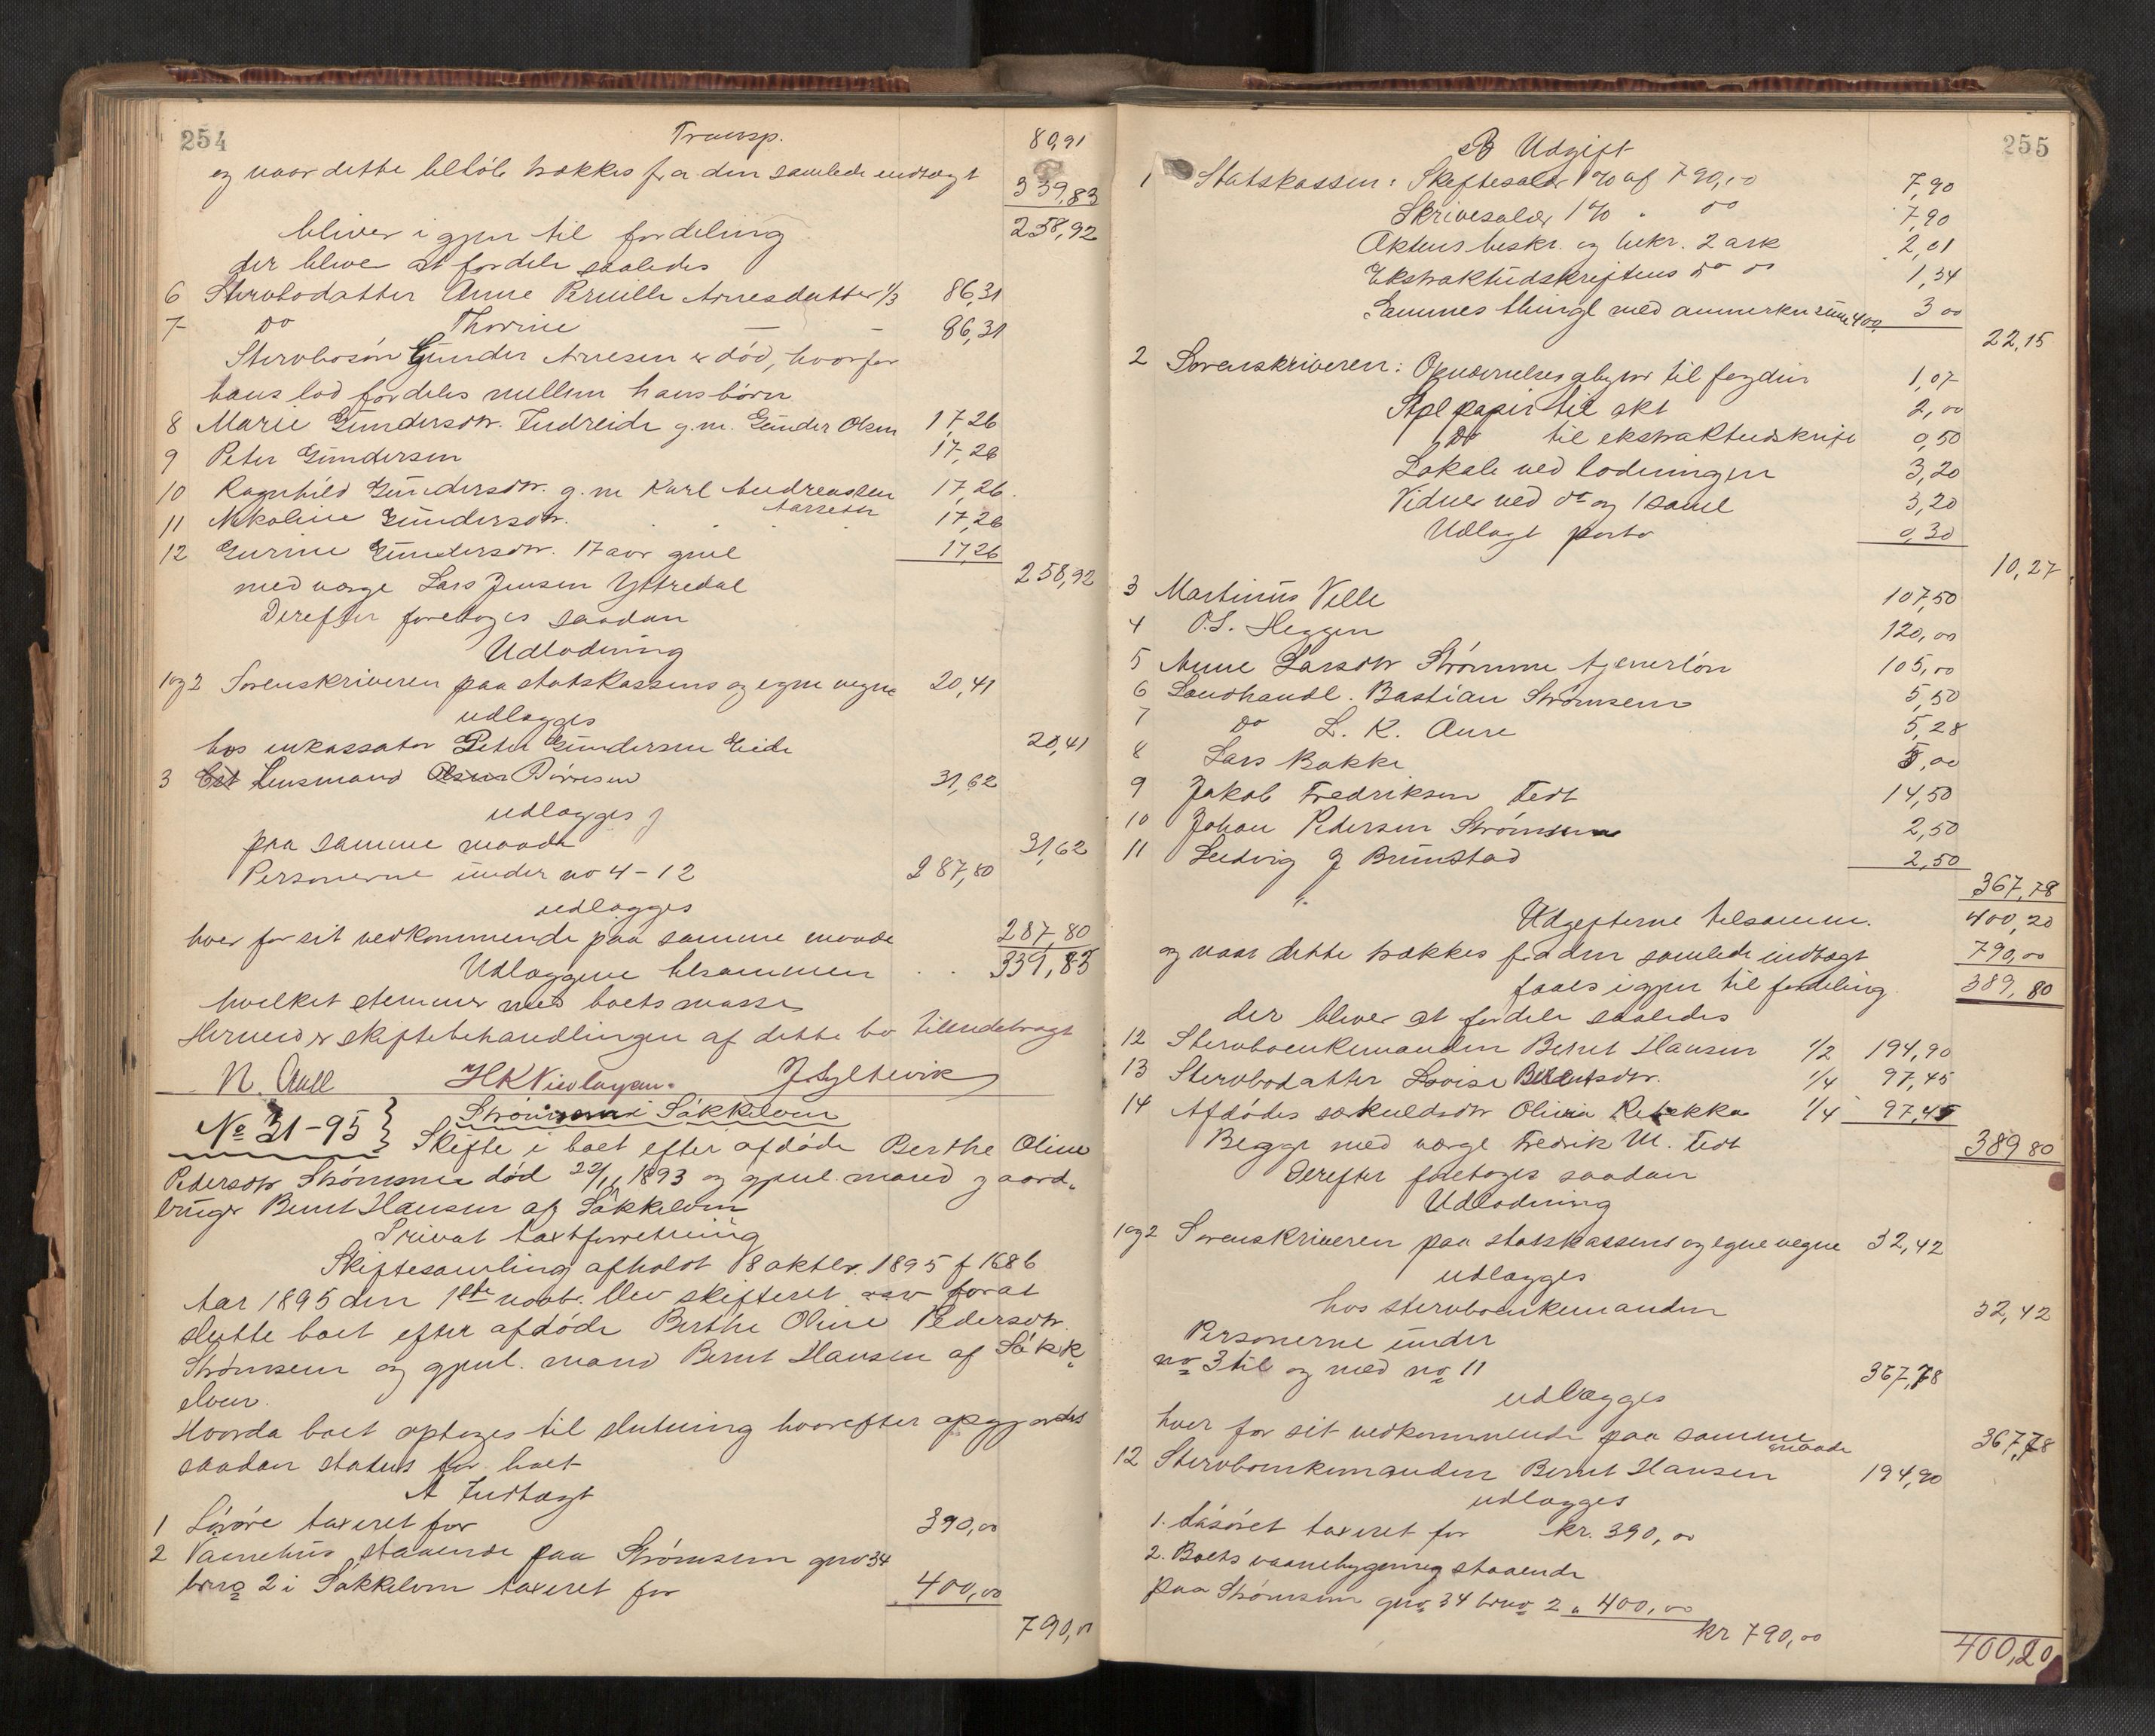 254
Transp. 80,91
og naar dette beløb trækkes fra den samlede indtægt 339,83
bliver igjen til fordeling 258,92
der bliver at fordele saaledes
6 Stervbodatter Anne Pernille Arnesdatter 1/3 86,31
7 Do Thorine — – 86,31
Stervbosøn Gunder Arnesen er død, hvorfor
hans lod fordeles mellem hans børn
8 Marie Gundersdtr. Indreide g.m. Gunder Olsen 17,26
9 Peter Gundersen 17,26
10 Ragnhild Gundersdtr. g.m Karl Andreassen 17,26
Aarseth
11 Nikoline Gundersdtr. 17,26
12 Gurine Gundersdtr. 17 aar gml 17,26
med værge Lars Jensen Yttredal 258,92
Derefter foretoges saadan
Udlodning
1og2 Sorenskriveren paa statskassens og egne vegne 20,41
udlægges
hos inkassator Peter Gundersen Eide 20,41
3 Lensmand Dørresen 31,62
udlægges
paa samme maade 31,62
Personerne under no 4-12 287,80
udlægges
hver for sit vedkommende paa samme maade 287,80
Udlæggene tilsammen 339,83
hvilket stemmer med boets masse
Hermed er skiftebehandlingen af dette bo tilendebragt
N. Aall HKNicolaysen. J. Sylthevik
No 31-95 } Strømmen i Søkkelven
Skifte i boet efter afdøde Berthe Oline
Pedersdtr Strømmen død 22/11 1893 og gjenl. mand gaard-
bruger Bernt Hansen af Søkkelven
Privat taxtforretning
Skiftesamling afholdt 18 oktbr. 1895 f 168 b
Aar 1895 den 1ste novbr. blev skifteret sat forat
slutte boet efter afdøde Berthe Oline Pedersdtr.
Strømsem og gjenl. mand Bernt Hansen af Søkk-
elven.
Hvorda boet optoges til slutning hvorefter opgjordes
saadan status for boet
A Indtægt
1 Løsøre taxeret for 390,00
2 Vaanehus staaende paa Strømsem gno 34
brno 2 i Søkkelven taxeret for 400,00
790,00
255
B Udgift
1 Statskassen: Skiftesalær 1% af 790,00 7,90
Skrivesalær 1% " do 7,90
Aktens beskr. og bekr. 2 ark 2,01
Ekstraktudskriftens do do 1,34
Sammes thingl med anmerkn 3 00
22,15
2 Sorenskriveren: Opnævnelsesgebyr til fogden 1,07
Stpl papir til akt 2,00
Do til ekstraktudskrift 0,50
Lokale ved lodningen 3,20
Vidner ved do og 1 saml 3,20
Udlagt porto 0,30
10,27
3 Martinus Velle 107,50
4 O.S. Heggen 120,00
5 Anne Larsdtr Strømme tjenerløn 105,00
6 Landhandl. Bastian Strømsem 5,50
7 Do L. K. Aure 5,28
8 Lars Bakke 5,00
9 Jakob Fredriksen Tedt 14,50
10 Johan Pedersen Strømsem 2,50
11 Ludvig J Brunstad 2,50
367,78
Udgifterne tilsamm. 400,20
og naar dette trækkes fra den samlede indtægt 790,00
faaes igjen til fordeling 389,80
der bliver at fordele saaledes
12 Stervboenkemanden Bernt Hansen 1/2 194,90
13 Stervbodatter Lovise Berntsdtr. 1/4 97,45
14 Afdødes særkuldsdtr Olivia Rebekka 1/4 97,45
Begge med værge Fredrik M. Tedt 389 80
Derefter foretoges saadan
Udlodning
1og2 Sorenskriveren paa statskassens og egne vegne 32,42
udlægges
hos stervboenkemanden 32,42
Personerne under
no 3 til og med no 11 367,78
udlægges
hver for sit vedkommende paa samme
maade 367,78
12 Stervboenkemanden Bernt Hansen 194,90
udlægges
1. Løsøret taxeret for kr. 390,00
2. Boets vaanebygning staaende
paa Strømsem gno 34 brno 2 " 400,00
kr 790,00
400,20